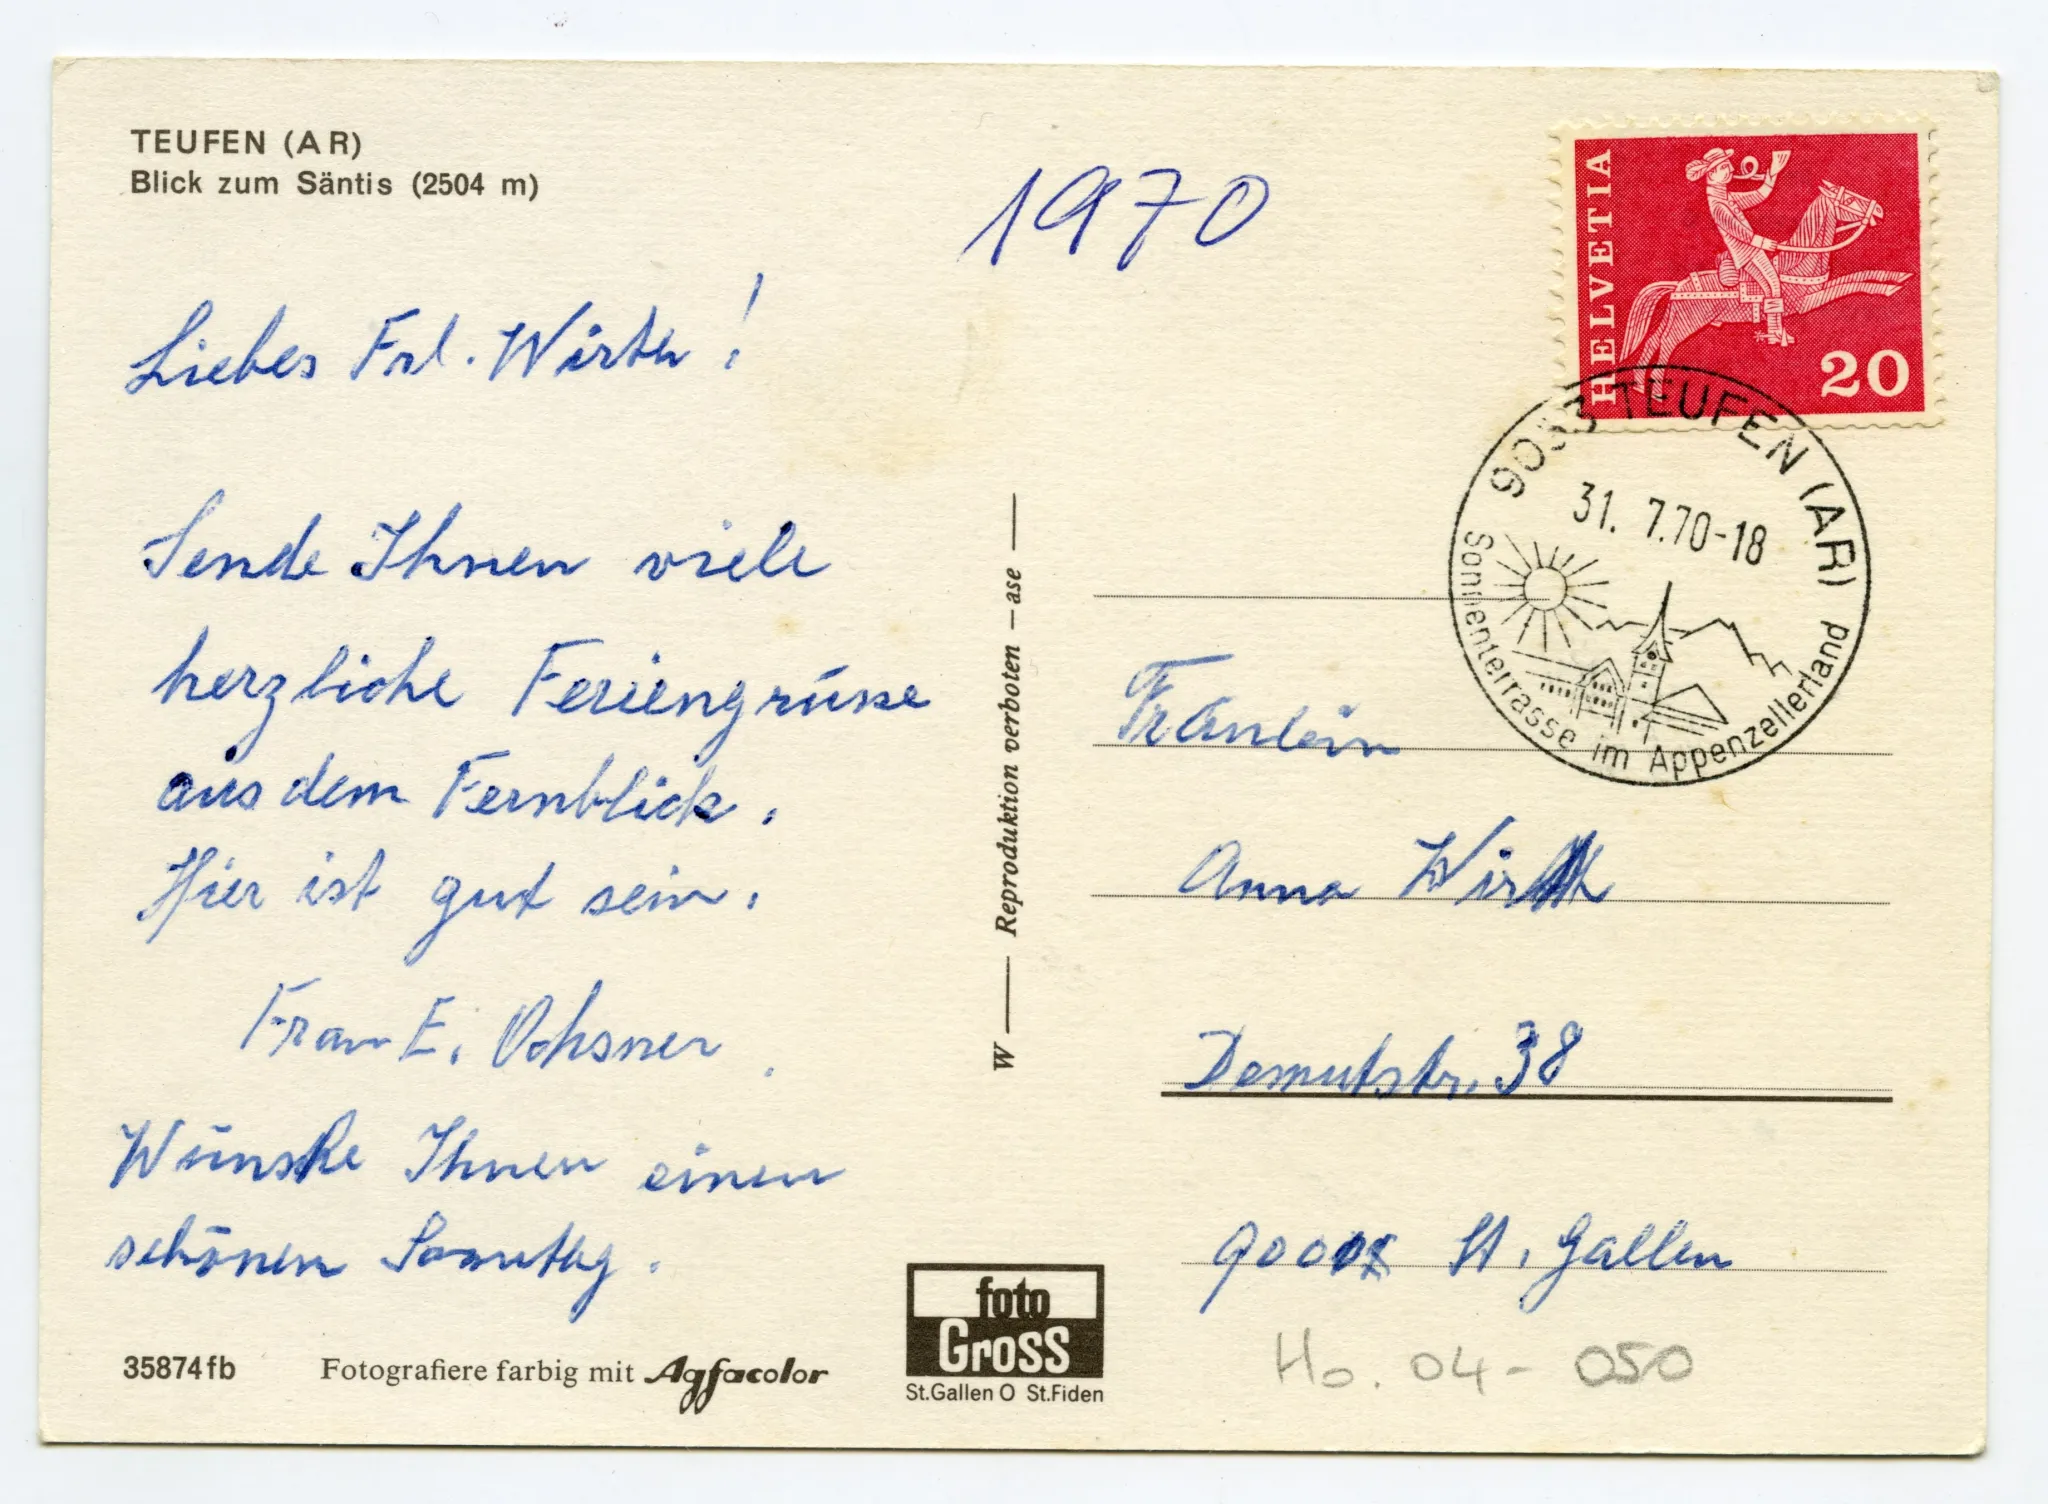 TEUFEN (AR)
Blick zum Säntis (2504 m)
1970
Liebes Frl. Wirth!
Sende Ihnen viele
herzliche Feriengrüsse
aus dem Fernblick.
Hier ist gut sein.
Frau E. Ochsner.
Wünsche Ihnen einen
schönen Sonntag.
35874fb
Fotografiere farbig mit Agfacolor
W — Reproduktion verboten – ase —
foto
Gross
St.Gallen O St.Fiden
HELVETIA
20
9053 TEUFEN (AR)
31. 7.70-18
Sonnenterrasse im Appenzellerland
Fräulein
Anna Wirth
Demutstr. 38
St. Gallen
Ho. 04 - 050